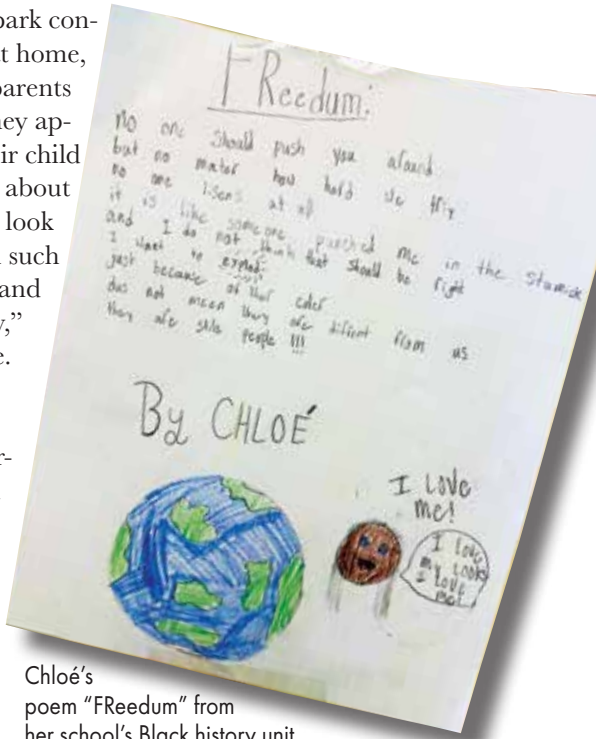 park con-
t home,
parents
hey ap-
ir child
about
look
such
and
y,”
e.
r-
FReedum:
no one should push you around
but no mater how hard we try
no one lisens at all
it is like someone punched me in the stumick
and I do not think that should be right
I want to explode
just because of ther coler
dus not meen they are difient from us
they are stile people !!!
By CHLOÉ
I love
me!
I love
my looks
I love
me!
Chloé’s
poem “FReedum” from
her school’s Black history unit